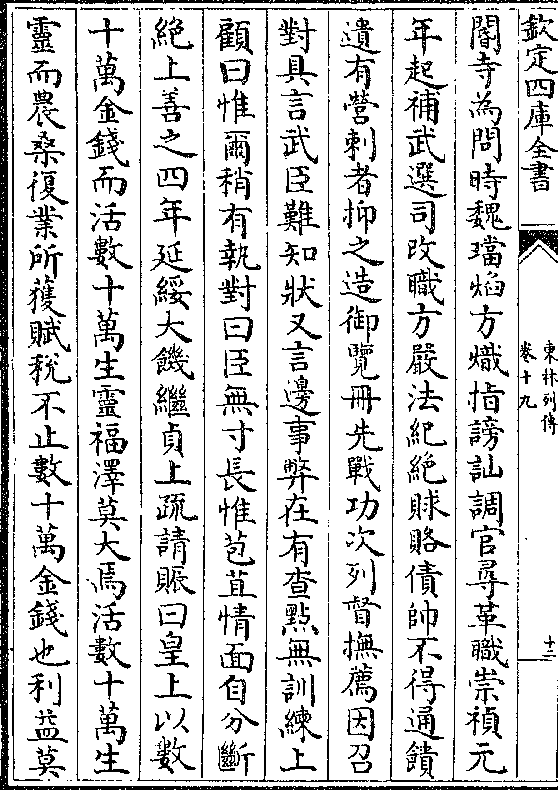 欽定四庫全書
東林列傳
卷十九
十三
閣寺為問時魏璫焰方熾指謗訕調官尋革職崇禎元
年起補武選司改職方嚴法紀絶賕賂債帥不得通饋
遺有營剌者抑之造御覽冊先戰功次列督撫薦因召
對具言武臣難知狀又言邊事弊在有查㸃無訓練上
顧曰惟爾稍有執對曰臣無寸長惟苞苴情面自分斷
絶上善之四年延綏大饑繼貞上疏請賑曰皇上以數
十萬金錢而活數十萬生靈福澤莫大焉活數十萬生
靈而農桑復業所獲賦稅不止數十萬金錢也利益莫